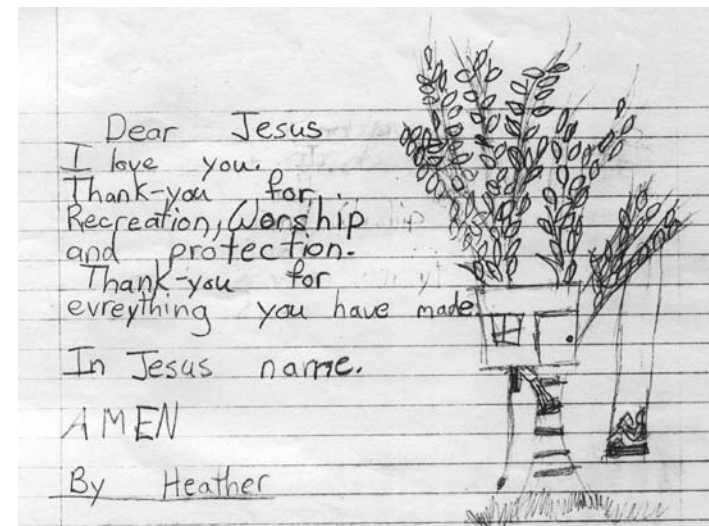 Dear Jesus
I love you.
Thank-you for
Recreation, Worship
and protection.
Thank-you for
evreything you have made.
In Jesus name.
AMEN
By Heather